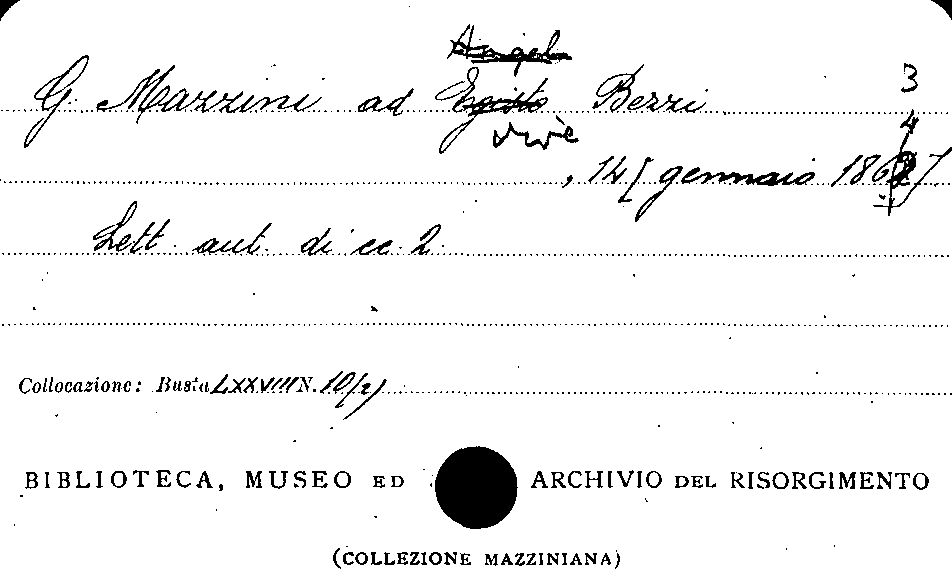 Angelo
G. Mazzini ad Egisto Bezzi
vive
3
4
, 14 [gennaio 1862]
Lett. aut. di cc. 2
Collocazione: Busta LXXVIII N. 10/2)
BIBLIOTECA, MUSEO ED ARCHIVIO DEL RISORGIMENTO
(COLLEZIONE MAZZINIANA)